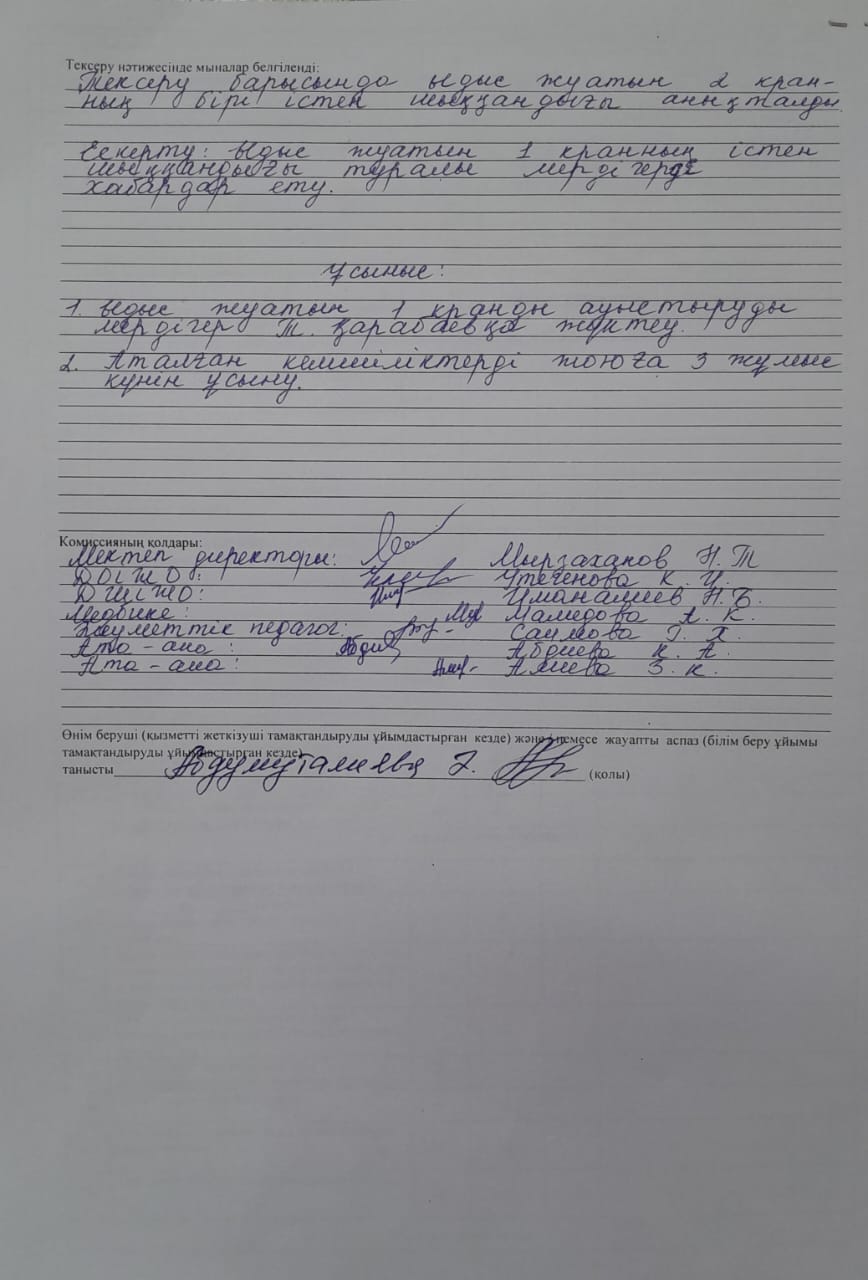 Тексеру нәтижесінде мыналар белгіленді:
Тексеру барысында ыдыс жуатын 2 кран-
ның бірі істен шыққандығы анықталды.
Ескерту: ыдыс жуатын 1 кранның істен
шыққандығы туралы мердігерді
хабардар ету.
Ұсыныс:
1. ыдыс жуатын 1 кранды ауыстыруды
мердігер Т. Қарабаевқа жүктеу.
2. Аталған кемшіліктерді жоюға 3 жұмыс
күнін ұсыну.
Комиссияның қолдары:
Мектеп директоры: Мырзаханов Н. Т
ДОІЖО: Утегенова К. У.
ДШІЖО: Иманалиев Н. Б.
Медбике: Мамедова А. К.
Әлеуметтік педагог: Саимова Г. Х.
Ата - ана : Абдиева К. А.
Ата - ана : Алиева З. К.
Өнім беруші (қызметті жеткізуші тамақтандыруды ұйымдастырған кезде) және немесе жауапты аспаз (білім беру ұйымы
тамақтандыруды ұйымдастырған кезде)
танысты Абдумуталиева (қолы)